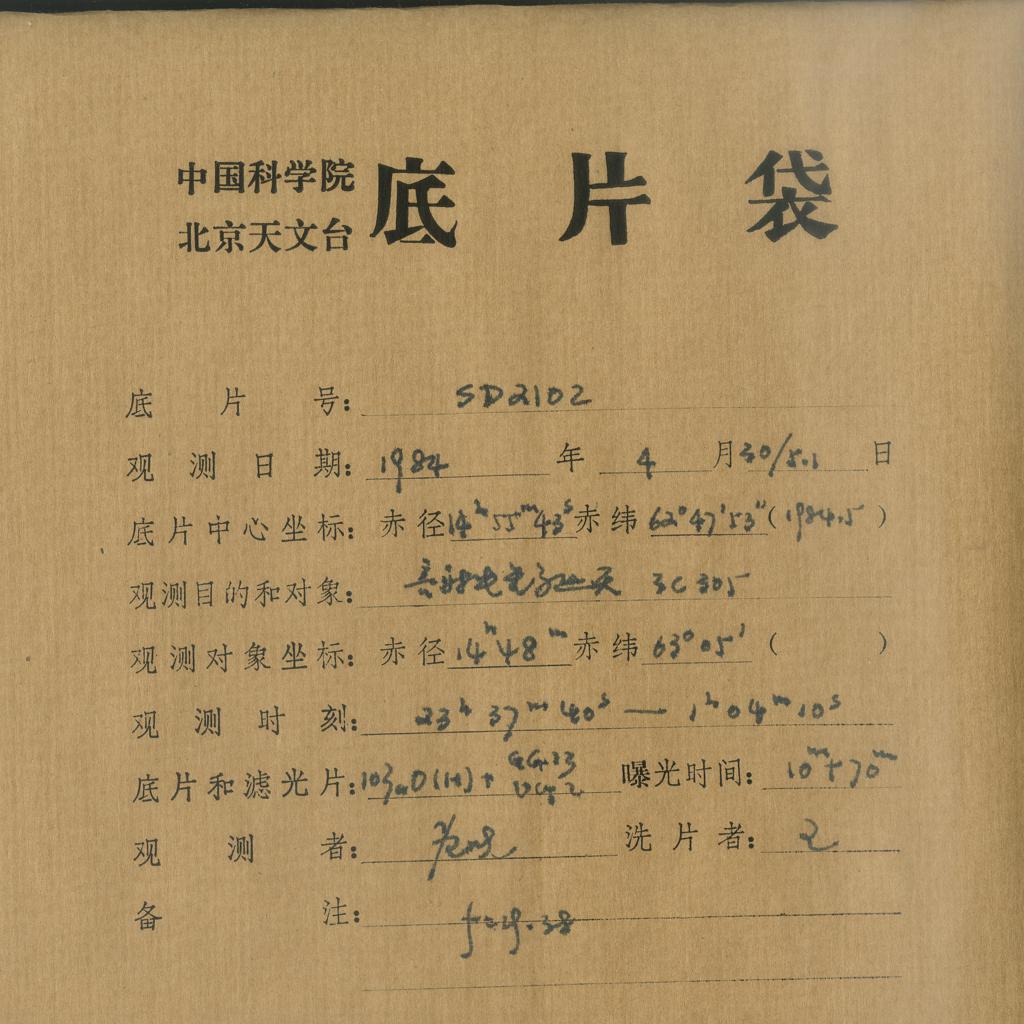 中国科学院
北京天文台
底片袋
底片号: SD2102
观测日期: 1984年 4月30/5.1日
底片中心坐标: 赤径14h55m43s赤纬62°47'53"(1984.5)
观测目的和对象: 3C 305
观测对象坐标: 赤径14h48m赤纬63°05'( )
观测时刻: 23h 37m 40s — 1h 04m 10s
底片和滤光片: 103aO(H)+ GG13 UG2 曝光时间: 10m+70m
观测者: 洗片者:
备注: f=29.38